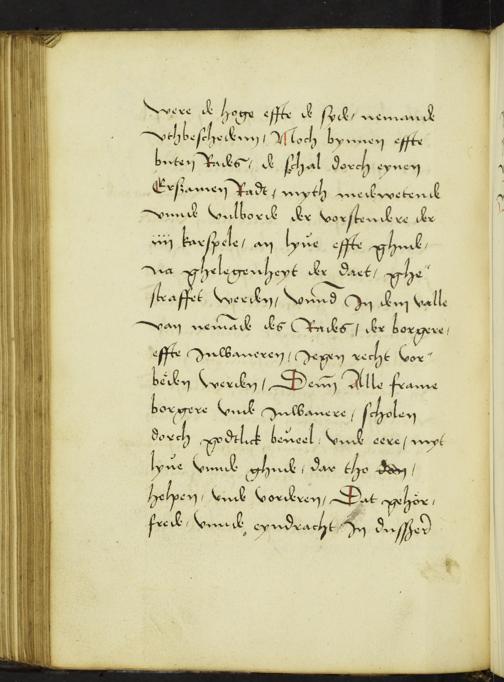 were de hoge effte de syde, nemande
vthbeschedenn, Noch bynnen effte
buten Rades, de schal dorch eynen
Ersamen Radt, myth medewetende
vnnde vulborde der vorstendere der
iiii karspele, an lyue effte ghude,
na ghelegenheyt der daet, ghe"
straffet werden, vnnd In dem valle
van nemāde des Rades, der borgere,
effte Inwaneren, Jegen recht vor"
beden werden, Denn Alle frame
borgere vnde Inwanere, scholen
dorch godtlick beueel, vnde eere, myt
lyue vnnde ghude, dar tho
helpen, vnde vorderen, Dat gehör,
frede, vnnde eyndracht In dusser